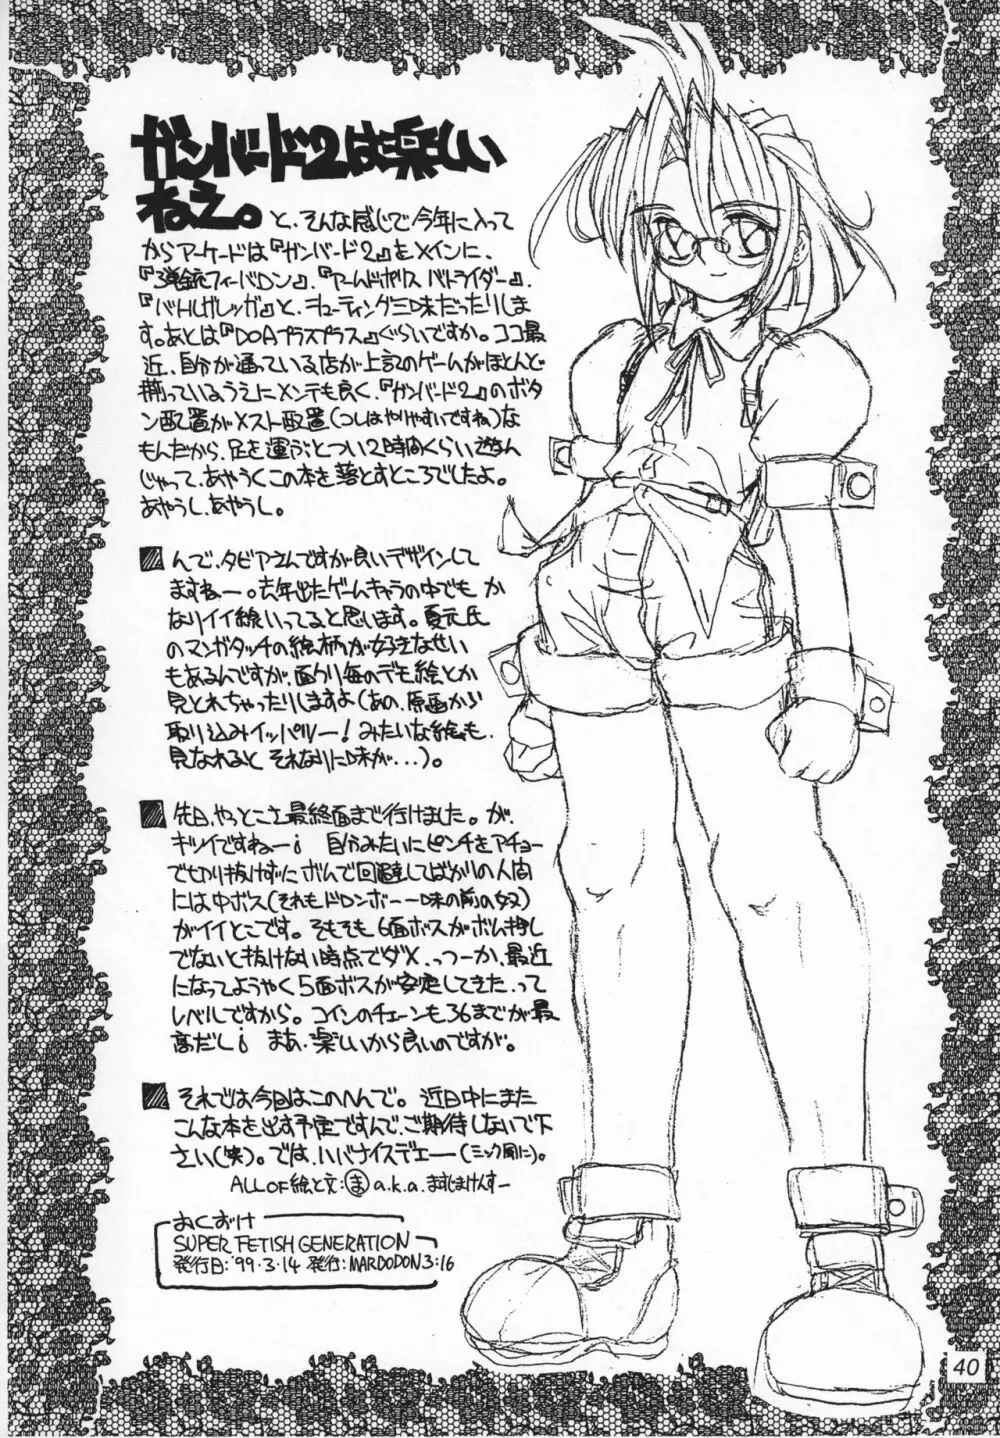 ガンバード2は楽しい
ねえ。と、そんな感じで今年に入って
からアーケードは『ガンバード2』をメインに、
『弾銃フィーバロン』、『アームドポリス バトライダー』、
『バトルガレッガ』と、シューティング三昧だったりしま
す。あとは『DOAプラスプラス』くらいですか。ココ最
近、自分が通っている店が上記のゲームがほとんど
揃っているうえにメンテも良く、『ガンバード2』のボタ
ン配置がメスト配置(つしはやりやすいですね)な
もんだから、足を運ぶとつい2時間くらい遊ん
じゃって、あやうくこの本を落とすところでしたよ。
あやうし、あやうし。
んで、タビアさんですが良いデザインして
ますねー。去年出たゲームキャラの中でも か
なりイイ線いってると思います。夏元氏
のマンガタッチの絵柄が好きなせい
もあるんですが、面クリ毎のデモ絵とか
見とれちゃったりしますよ(あの、原画から
取り込みイッパツー!みたいな絵も、
見なれると それなりに味が...)。
先日、やっとこさ最終面まで行けました。が、
キツイですねー; 自分みたいにピンチをアチョー
で切り抜けずにボムで回避してばかりの人間
には中ボス(それもドロンボー一味の前の奴)
がイイとこです。そもそも6面ボスがボム押し
でないと抜けない時点でダメ、っつーか、最近
になってようやく5面ボスが安定してきた、って
レベルですから。コインのチェーンも36までが最
高だし; まあ、楽しいから良いのですが。
それでは今回はこのへんで。近日中にまた
こんな本を出す予定ですんで、ご期待しないで下
さい(笑)。では、ハバナイスデェー(ミンク風に)。
ALL OF 絵と文:ま a.k.a. ましまけんすー
おくづけ
SUPER FETISH GENERATION
発行日:'99.3.14 発行:MARDODON3:16
40